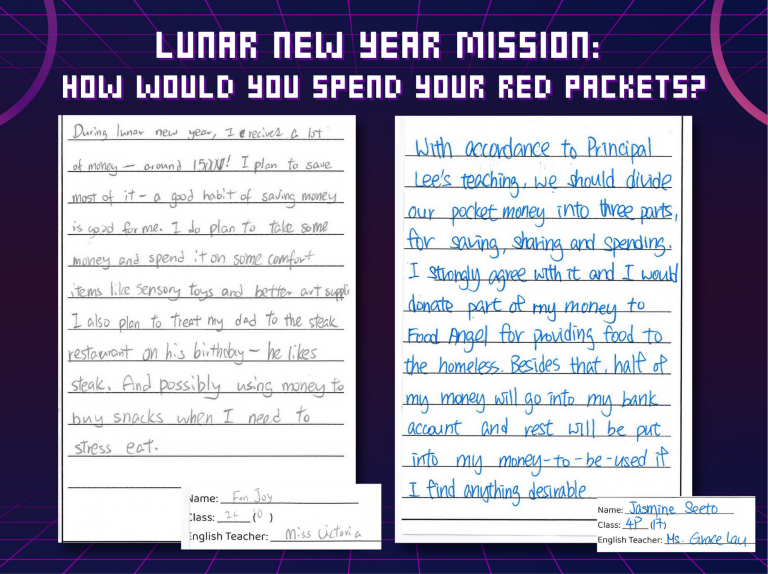 LUNAR NEW YEAR MISSION:
HOW WOULD YOU SPEND YOUR RED PACKETS?
During lunar new year, I recived a lot
of money – around 1500! I plan to save
most of it – a good habit of saving money
is good for me. I do plan to take some
money and spend it on some comfort
items like sensory toys and better art suppli
I also plan to treat my dad to the steak
restaurant on his birthday – he likes
steak. And possibly using money to
buy snacks when I need to
stress eat.
Name: Fan Joy
Class: 2L ( )
English Teacher: Miss Victoria
With accordance to Principal
Lee's teaching, we should divide
our pocket money into three parts,
for saving, sharing and spending.
I strongly agree with it and I would
donate part of my money to
Food Angel for providing food to
the homeless. Besides that, half of
my money will go into my bank
account and rest will be put
into my money-to-be-used if
I find anything desirable
Name: Jasmine Seeto
Class: 4P (17)
English Teacher: Ms. Grace Lau